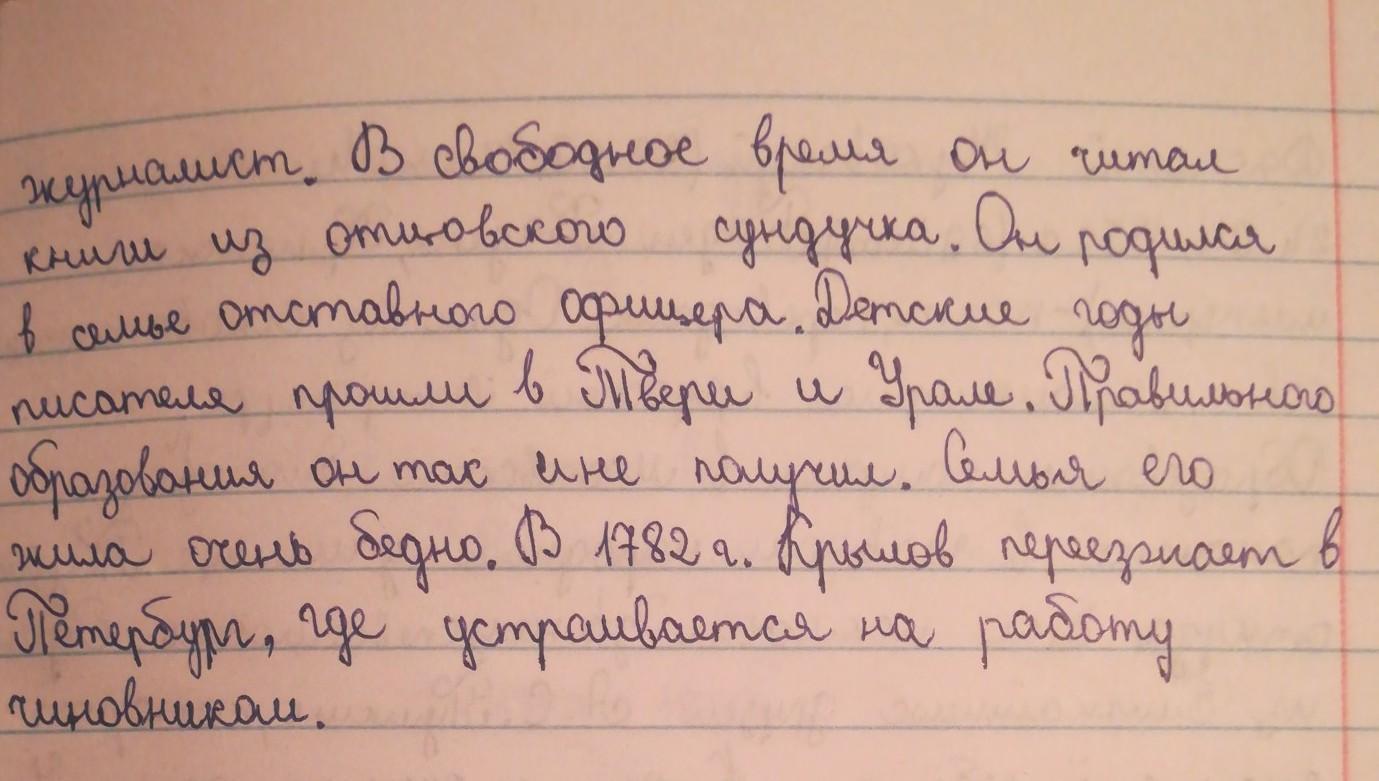 журналист. В свободное время он читал
книги из отцовского сундучка. Он родился
в семье отставного офицера. Детские годы
писателя прошли в Твери и Урале. Правильного
образования он так и не получил. Семья его
жила очень бедно. В 1782 г. Крылов переезжает в
Петербург, где устраивается на работу
чиновником.